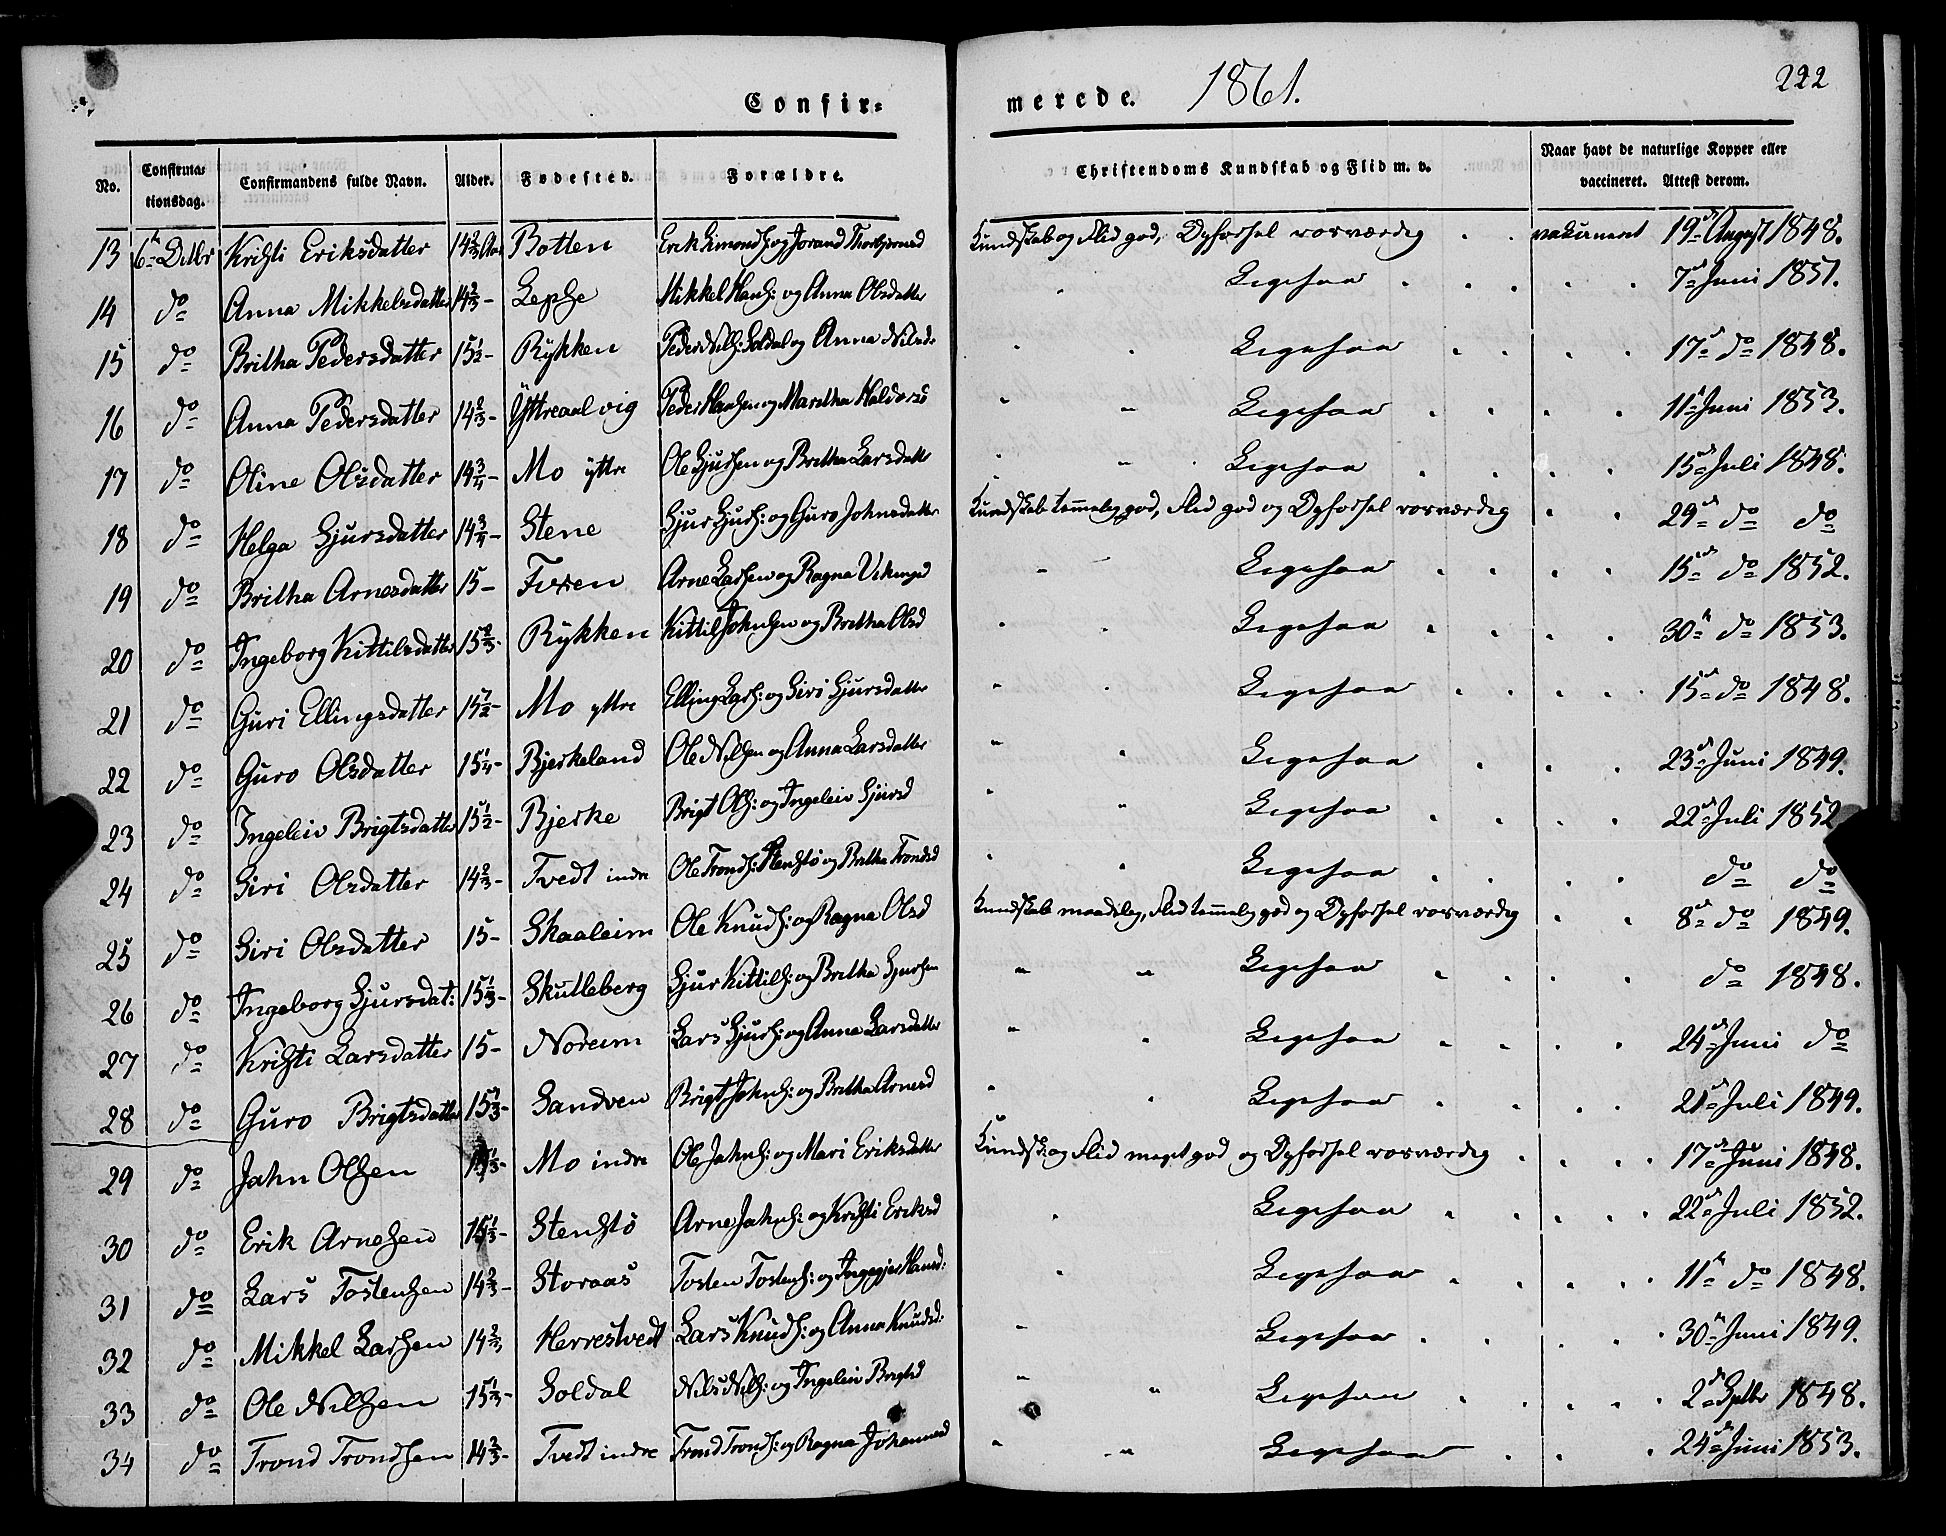 Confir-
merede. 1861. 222
No. Confirmationsdag. Confirmandens fulde Navn. Alder. Fødested. Forældre. Christendoms Kundskab og Flid m. v. Naar havt de naturlige Kopper eller vaccineret. Attest derom.
13 6te Octbr Kristi Eriksdatter 14 2/3 Aar Botten Erik Simonds: og Jorand Thorbjørnsd Kundskab og Flid god, Opførsel rosværdig vakcineret 19de August 1848.
14 do Anna Mikkelsdatter 14 2/3 - Lepse Mikkel Hans: og Anna Olsdatter Ligesaa 7de Juni 1851.
15 do Britha Pedersdatter 15 1/2 - Rykken Peder Nils: Soldal og Anna Nilsd: Ligesaa 17de do 1848.
16 do Anna Pedersdatter 14 2/3 - Yttreaalvig Peder Hansen og Maretha Haldorsd Ligesaa 11te Juni 1853.
17 do Oline Olsdatter 14 3/4 - Mo yttre Ole Sjursen og Britha Larsdatter Ligesaa 15de Juli 1848.
18 do Helga Sjursdatter 14 3/4 - Stene Sjur Sjurs: og Guro Johnsdatter Kundskab temmelig god, Flid god og Opførsel rosværdig 29de do do
19 do Britha Arnesdatter 15 - Fixen Arne Larsen og Ragna Vikingsd Ligesaa 15de do 1852.
20 do Ingeborg Kittilsdatter 15 2/3 - Rykken Kittil Johnsen og Britha Olsd Ligesaa 30te do 1853.
21 do Guri Ellingsdatter 15 1/2 - Mo yttre Elling Lars: og Siri Sjursdatter Ligesaa 15de do 1848.
22 do Guro Olsdatter 15 1/4 - Bjerkeland Ole Nilsen og Anna Larsdatter Ligesaa 23de Juni 1849.
23 do Ingeleiv Brigtsdatter 15 1/2 - Bjerke Brigt Ols: og Ingeleiv Sjursd Ligesaa 22de Juli 1852
24 do Siri Olsdatter 14 2/3 - Tvedt indre Ole Tronds: Stensto og Britha Trondsd Ligesaa do do
25 do Siri Olsdatter 15 - Skaaleim Ole Knuds: og Ragna Olsd Kundskab maadelig, Flid temmelig god og Opførsel rosværdig 8de do 1849.
26 do Ingeborg Sjursdat: 15 1/3 - Skutleberg Sjur Kittils: og Britha Ligesaa do 1848.
27 do Kristi Larsdatter 15 - Noreim Lars Sjurs: og Anna Larsdatter Ligesaa 24de Juni do
28 do Guro Brigtsdatter 15 1/3 - Sandven Brigt Johns: og Britha Arnesd Ligesaa 21de Juli 1849.
29 do John Olsen Mo indre Ole Johns: og Mari Eriksdatter Kundsk: og Flid meget god og Opførsel rosværdig 17de Juni 1848.
30 do Erik Arnesen 15 1/3 - Stensto Arne Johns: og Kristi Eriksd Ligesaa 22de Juli 1852.
31 do Lars Tostensen 14 2/3 - Storaas Tosten Tostens: og Ingegjer Hansd: Ligesaa 11te do 1848.
32 do Mikkel Larsen 14 2/3 Herrestvedt Lars Knuds: og Anna Knudsd: Ligesaa 30te Juni 1849.
33 do Ole Nilsen 15 1/3 - Soldal Nils Nils: og Ingeleiv Brigtsd Ligesaa 2de Septbr 1848.
34 do Trond Trondsen 14 2/3 - Tvedt indre Trond Tronds: og Ragna Johannesd Ligesaa 24de Juni 1853.